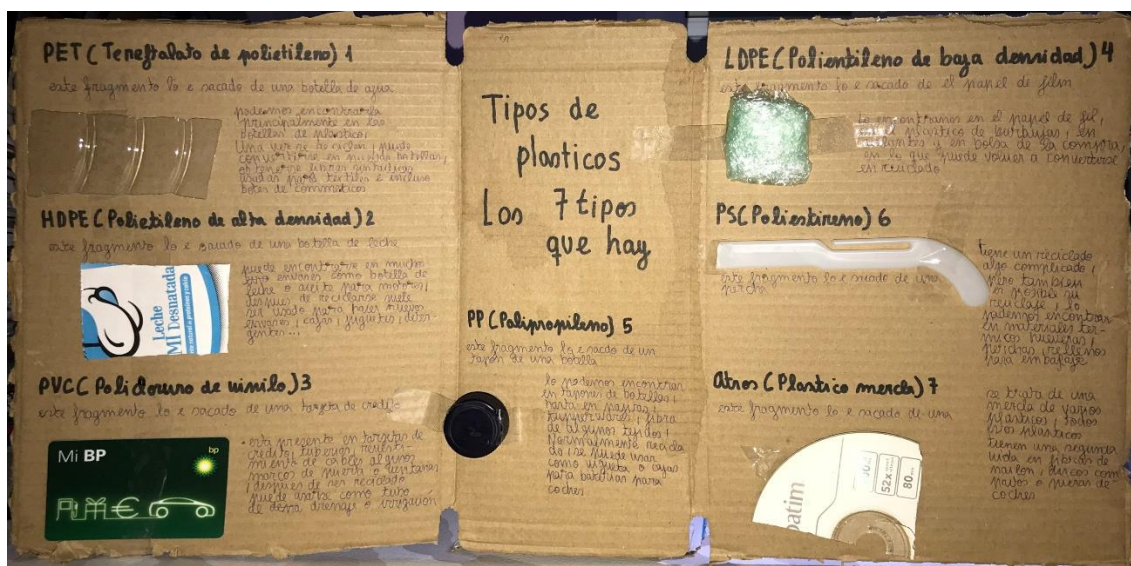 PET (Tereftalato de polietileno) 1
este fragmento lo e sacado de una botella de agua
podemos encontrarla
principalmente en las
botellas de plastico,
Una vez se lo recicla, puede
convertirse en nuevas botellas,
obtenerse fibras sinteticas
usadas para textiles e incluso
botes de cosmeticos
HDPE (Polietileno de alta densidad) 2
este fragmento lo e sacado de una botella de leche
puede encontrarse en muchos
envases como botella de
leche o aceite para motores,
despues de reciclarse suele
ser usado para hacer nuevos
envases, cajas, juguetes, deter-
gentes...
Leche
MI Desnatada
PVC (Policloruro de vinilo) 3
este fragmento lo e sacado de una tarjeta de credito
esta presente en tarjetas de
credito, tuberias, revesti-
miento de cables algunos
marcos de puerta o ventanas
, despues de ser reciclado
puede usarse como tubo
de drenaje o irrigacion
Mi BP
bp
Tipos de
plasticos
Los 7 tipos
que hay
PP (Polipropileno) 5
este fragmento lo e sacado de un
tapon de una botella
lo podemos encontrar
en tapones de botellas,
hasta en pajitas,
tupperwares, fibra
de algunos tejidos,
Normalmente recicla
do, se puede usar
como vigueta o cajas
para baterias para
coches
LDPE (Polientileno de baja densidad) 4
este fragmento lo e sacado de el papel de film
lo encontramos en el papel de fil,
plastico de burbujas, en
y en bolsa de la compra,
en lo que puede volver a convertirse
es reciclado
PS (Poliestireno) 6
este fragmento lo e sacado de una
percha
tiene un reciclado
algo complicado,
pero tambien
es posible su
reciclaje, lo
podemos encontrar
en materiales ter-
micos hueveras,
rellenos
para embalaje
Otros (Plastico mezcla) 7
este fragmento lo e sacado de una
se trata de una
mezcla de varios
plasticos, todos
esos plasticos
tienen una segunda
vida en fibras de
nailon, discos com
patos o piezas de
coches
batim
52x
80